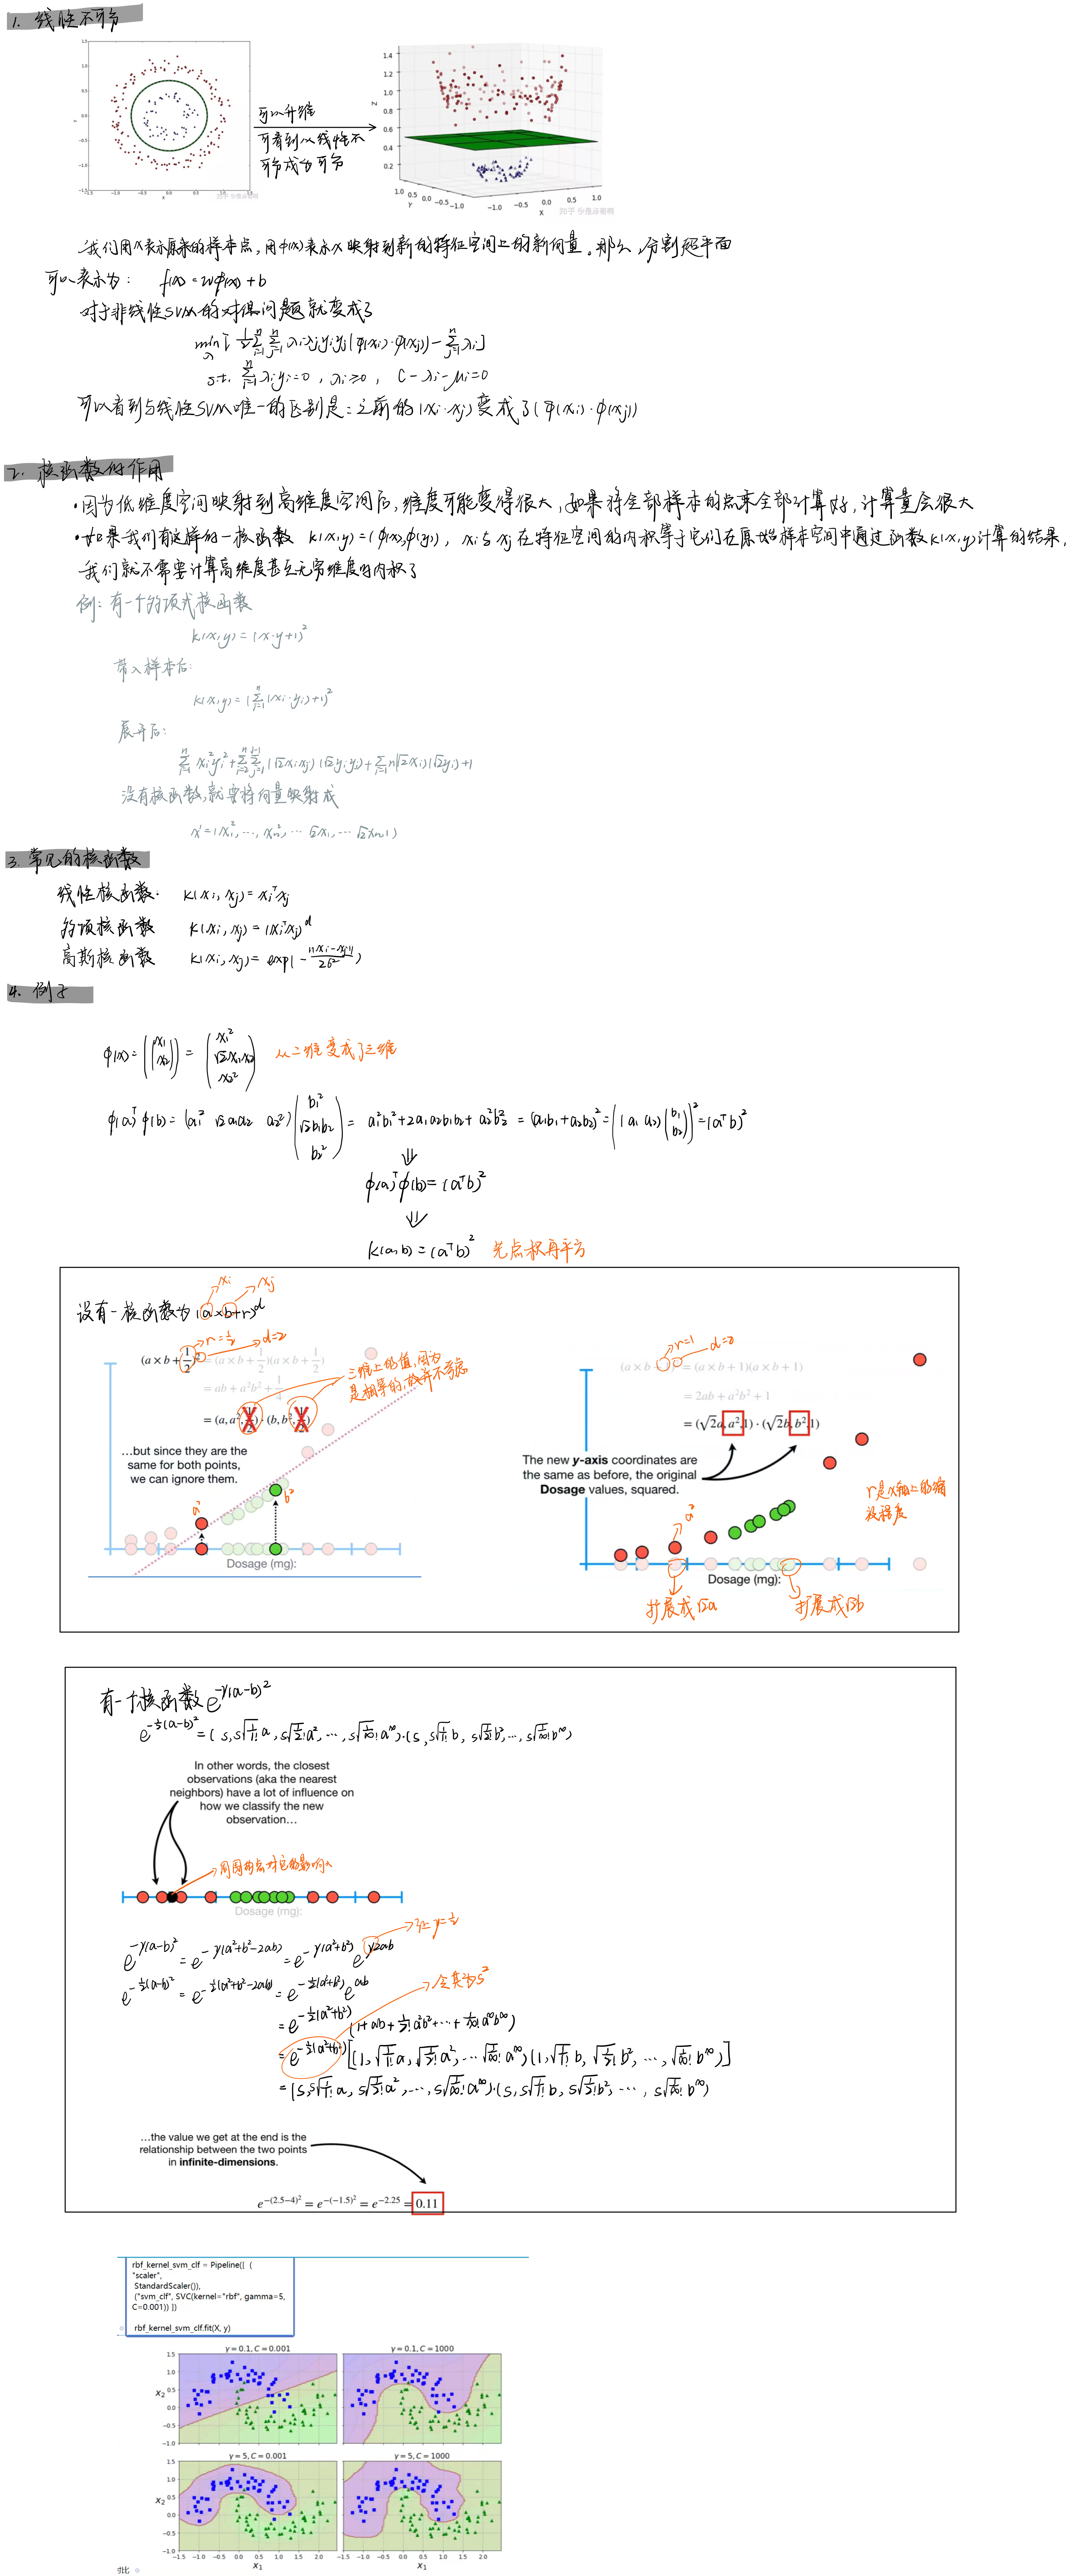 1. 线性不可分
可以升维
可看到从线性不
可分成为可分
知乎 @是泳哥啊
知乎 @是泳哥啊
我们用x表示原来的样本点,用φ(x)表示x映射到新的特征空间上的新向量。那么,分割超平面
可以表示为: f(x) = wφ(x) + b
对于非线性SVM的对偶问题就变成了
min_λ [ 1/2 Σ_{i=1}^n Σ_{j=1}^n λiλjyiyj(φ(xi)·φ(xj)) - Σ_{j=1}^n λi ]
s.t. Σ_{i=1}^n λiyi=0 , λi≥0 , C-λi-μi=0
可以看到与线性SVM唯一的区别是:之前的(xi·xj)变成了(φ(xi)·φ(xj))
2. 核函数的作用
·因为低维度空间映射到高维度空间后,维度可能变得很大,如果将全部样本的点乘全部计算好,计算量会很大
·如果我们有这样的一核函数 k(x,y)=(φ(x),φ(y)), xi与xj在特征空间的内积等于它们在原始样本空间中通过函数k(x,y)计算的结果,
我们就不需要计算高维度甚至无穷维度的内积了
例:有一个多项式核函数
k(x,y)=(x·y+1)²
带入样本后:
k(x,y)=(Σ_{i=1}^n (xi·yi)+1)²
展开后:
Σ_{i=1}^n xi²yi²+Σ_{i=2}^n Σ_{j=1}^{i-1} (√2xixj)(√2yiyj)+Σ_{i=1}^n (√2xi)(√2yi)+1
没有核函数,就要将向量映射成
x'=(x1²,…,xn²,… √2x1,… √2xn,1)
3. 常见的核函数
线性核函数: k(xi, xj)=xiᵀxj
多项核函数 k(xi, xj)=(xiᵀxj)^d
高斯核函数 k(xi, xj)=exp(-||xi-xj||/2δ²)
4. 例子
φ(x)=((x1 x2))=(x1² √2x1x2 x2²) 从二维变成了三维
φ(a)ᵀφ(b)=(a1² √2a1a2 a2²)(b1² √2b1b2 b2²)=a1²b1²+2a1a2b1b2+a2²b2²=(a1b1+a2b2)²=((a1 a2)(b1 b2))²=(aᵀb)²
⇓
φ(a)ᵀφ(b)=(aᵀb)²
⇓
k(a,b)=(aᵀb)² 先点积再平方
xi xj
设有一核函数为(a×b+r)^d
r=1/2 d=2
(a × b + 1/2)² = (a × b + 1/2)(a × b + 1/2)
= ab + a²b² + 1/4
= (a, a², 1/2) · (b, b², 1/2)
三维上的值,因为
是相等的,故并不考虑
…but since they are the
same for both points,
we can ignore them.
a² b²
Dosage (mg):
r=1 d=2
(a × b + 1)² = (a × b + 1)(a × b + 1)
= 2ab + a²b² + 1
= (√2a, a², 1) · (√2b, b², 1)
The new y-axis coordinates are
the same as before, the original
Dosage values, squared.
r是x轴上的缩
放程度
a²
Dosage (mg):
扩展成√2a 扩展成√2b
有一个核函数e^{-γ(a-b)²}
e^{-1/2(a-b)²}=(s, s√(1/1!)a, s√(1/2!)a², …, s√(1/∞!)a^∞)·(s, s√(1/1!)b, s√(1/2!)b², …, s√(1/∞!)b^∞)
In other words, the closest
observations (aka the nearest
neighbors) have a lot of influence on
how we classify the new
observation…
周围的点对它的影响大
Dosage (mg):
e^{-γ(a-b)²}=e^{-γ(a²+b²-2ab)}=e^{-γ(a²+b²)}e^{γ2ab}
令γ=1/2
e^{-1/2(a-b)²}=e^{-1/2(a²+b²-2ab)}=e^{-1/2(a²+b²)}e^{ab}
令其为s²
=e^{-1/2(a²+b²)}(1+ab+1/2!a²b²+…+1/∞!a^∞b^∞)
=e^{-1/2(a²+b²)}[(1,√(1/1!)a,√(1/2!)a²,…√(1/∞!)a^∞)(1,√(1/1!)b,√(1/2!)b²,…,√(1/∞!)b^∞)]
=(s,s√(1/1!)a,s√(1/2!)a²,…,s√(1/∞!)a^∞)·(s,s√(1/1!)b,s√(1/2!)b²,…,s√(1/∞!)b^∞)
…the value we get at the end is the
relationship between the two points
in infinite-dimensions.
e^{-(2.5-4)²} = e^{-(-1.5)²} = e^{-2.25} = 0.11
rbf_kernel_svm_clf = Pipeline([ (
"scaler",
StandardScaler()),
("svm_clf", SVC(kernel="rbf", gamma=5,
C=0.001)) ])
rbf_kernel_svm_clf.fit(X, y)
γ = 0.1, C = 0.001 γ = 0.1, C = 1000
γ = 5, C = 0.001 γ = 5, C = 1000
x₂
x₂
x₁ x₁